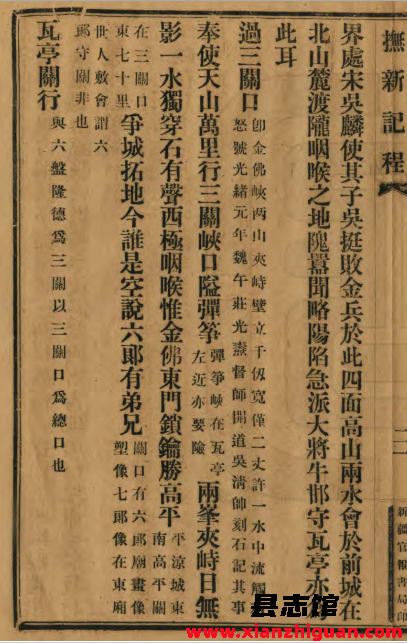 撫新記程
新疆官報書局印
界處宋吳麟使其子吳挺敗金兵於此四面高山兩水會於前城在
北山麓渡隴咽喉之地隗囂聞略陽陷急派大將牛邯守瓦亭亦
此耳
過三關口 即金佛峽兩山夾峙壁立千仞寬僅二丈許一水中流觸
怒號光緒元年魏午莊光燾督師開道吳淸帥刻石記其事
奉使天山萬里行三關峽口隘彈箏 彈箏峽在瓦亭左近亦要險 兩峯夾峙日無
影一水獨穿石有聲西極咽喉惟金佛東門鎖鑰勝高平 平涼城東南高平關
在三關口東七十里 爭城拓地今誰是空說六郞有弟兄 關口有六郞廟畫像塑像七郞像在東廂
世人敷會謂六郞守關非也
瓦亭關行 與六盤隆德爲三關以三關口爲總口也
县志馆
www.xianzhiguan.com